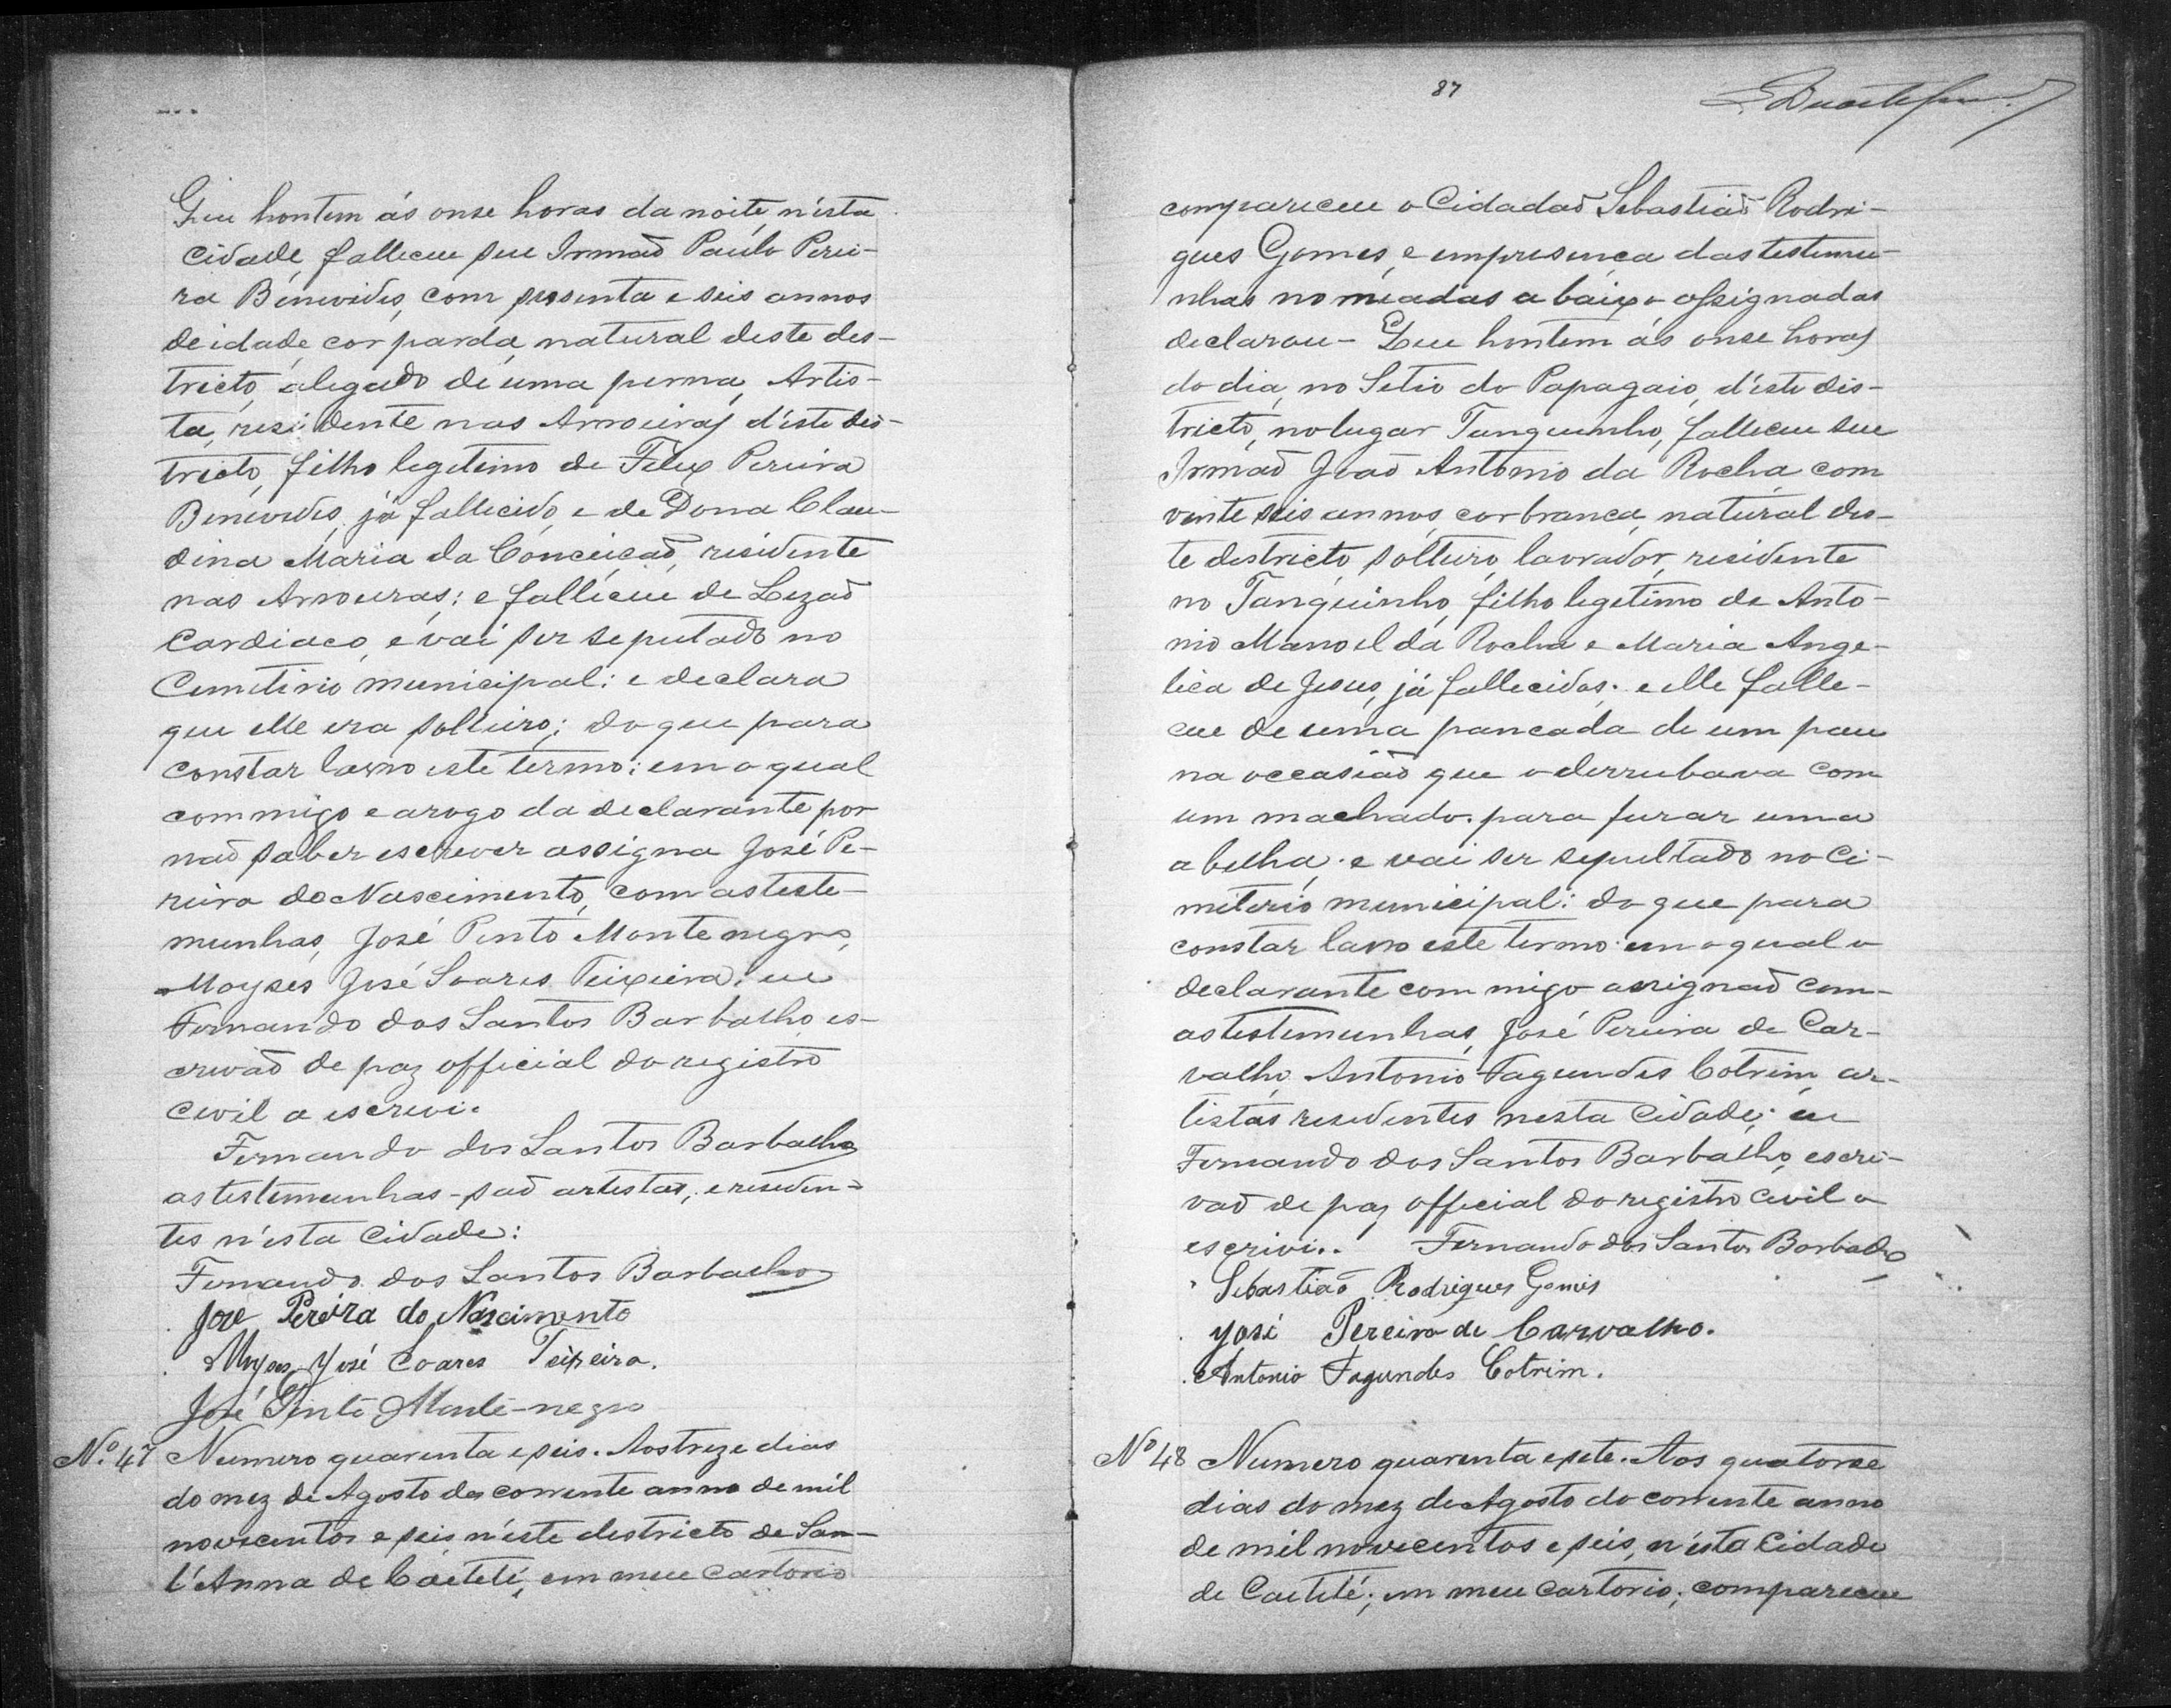 Que hontem ás onse horas da noite, n'ésta
cidade, falleceu seu Irmaõ Paulo Perei-
ra Benevides, com sessenta e seis annos
de idade, cor parda, natural deste des-
tricto, alegado de uma perna, Artis-
ta, residente nas Arroeiras d'éste des-
tricto, filho legetimo de Felix Pereira
Benevides, já fallecido, e de Dona Clau-
dina Maria da Conceiçaõ, residente
nas Aroeiras; e falleceu de Lezaõ
Cardiaco, e vai ser seputado no
Cemiterio municipal: e declara
que elle era solteiro; do que para
constar lavro este termo: em o qual
commigo e arogo da declarante por
naõ saber escrever assigna José Pe-
reira do Nascimento, com as teste-
munhas, José Pinto Montenegro,
Moyses José Soares Teixeira: eu
Fernando dos Santos Barbalho es-
crivaõ de paz official do registro
Civil o escrevi.
Fernando dos Santos Barbalho
as testemunhas - saõ artistas, e residen-
tes n'ésta Cidade:
Fernando dos Santos Barbalho
Jose Pereira do Nascimento
Moyses José Soares Teixeira.
José Pinto Monte-negro
Nº 47 Numero quarenta e seis. Aos treze dias
do mez de Agosto do corrente anno de mil
novecentos e seis n'éste destricto de San-
t'Anna de Caeteté, em meu Cartorio
87
compareceu o Cidadaõ Sebastiaõ Rodri-
gues Gomes, e em presença das testemu-
nhas nomeadas abaixo assignadas
declarou - Que hontem ás onse horas
do dia, no Setio do Papagaio, d'éste dis-
tricto, no lugar Tanquinho, falleceu seu
Irmaõ Joaõ Antonio da Rocha com
vinte seis annos, cor branca, natural des-
te destricto, solteiro, lavrador, residente
no Tanquinho, filho legetimo de Anto-
nio Manoel da Rocha e Maria Ange-
lica de Jesus, já fallecidos; e elle falle-
ceu de uma pancada de um pau
na occasiaõ que o derrubava com
um machado, para furar uma
abelha; e vai ser sepultado no Ci-
miterio municipal: do que para
constar lavro este termo em o qual o
declarante commigo assignaõ com
as testemunhas, José Pereira de Car-
valho, Antonio Fagundes Cotrim, ar-
tistas residentes nesta Cidade; eu
Fernando dos Santos Barbalho, escri-
vaõ de paz official do registro Civil o
escrivi.. Fernando dos Santos Barbalho
Sebastiaõ Rodrigues Gomes
José Pereira de Carvalho.
Antonio Fagundes Cotrim.
Nº 48 Numero quarenta e sete. Aos quatorse
dias do mez de Agosto do corrente anno
de mil novecentos e seis, n'ésta Cidade
de Caeteté; em meu Cartorio; compareceu